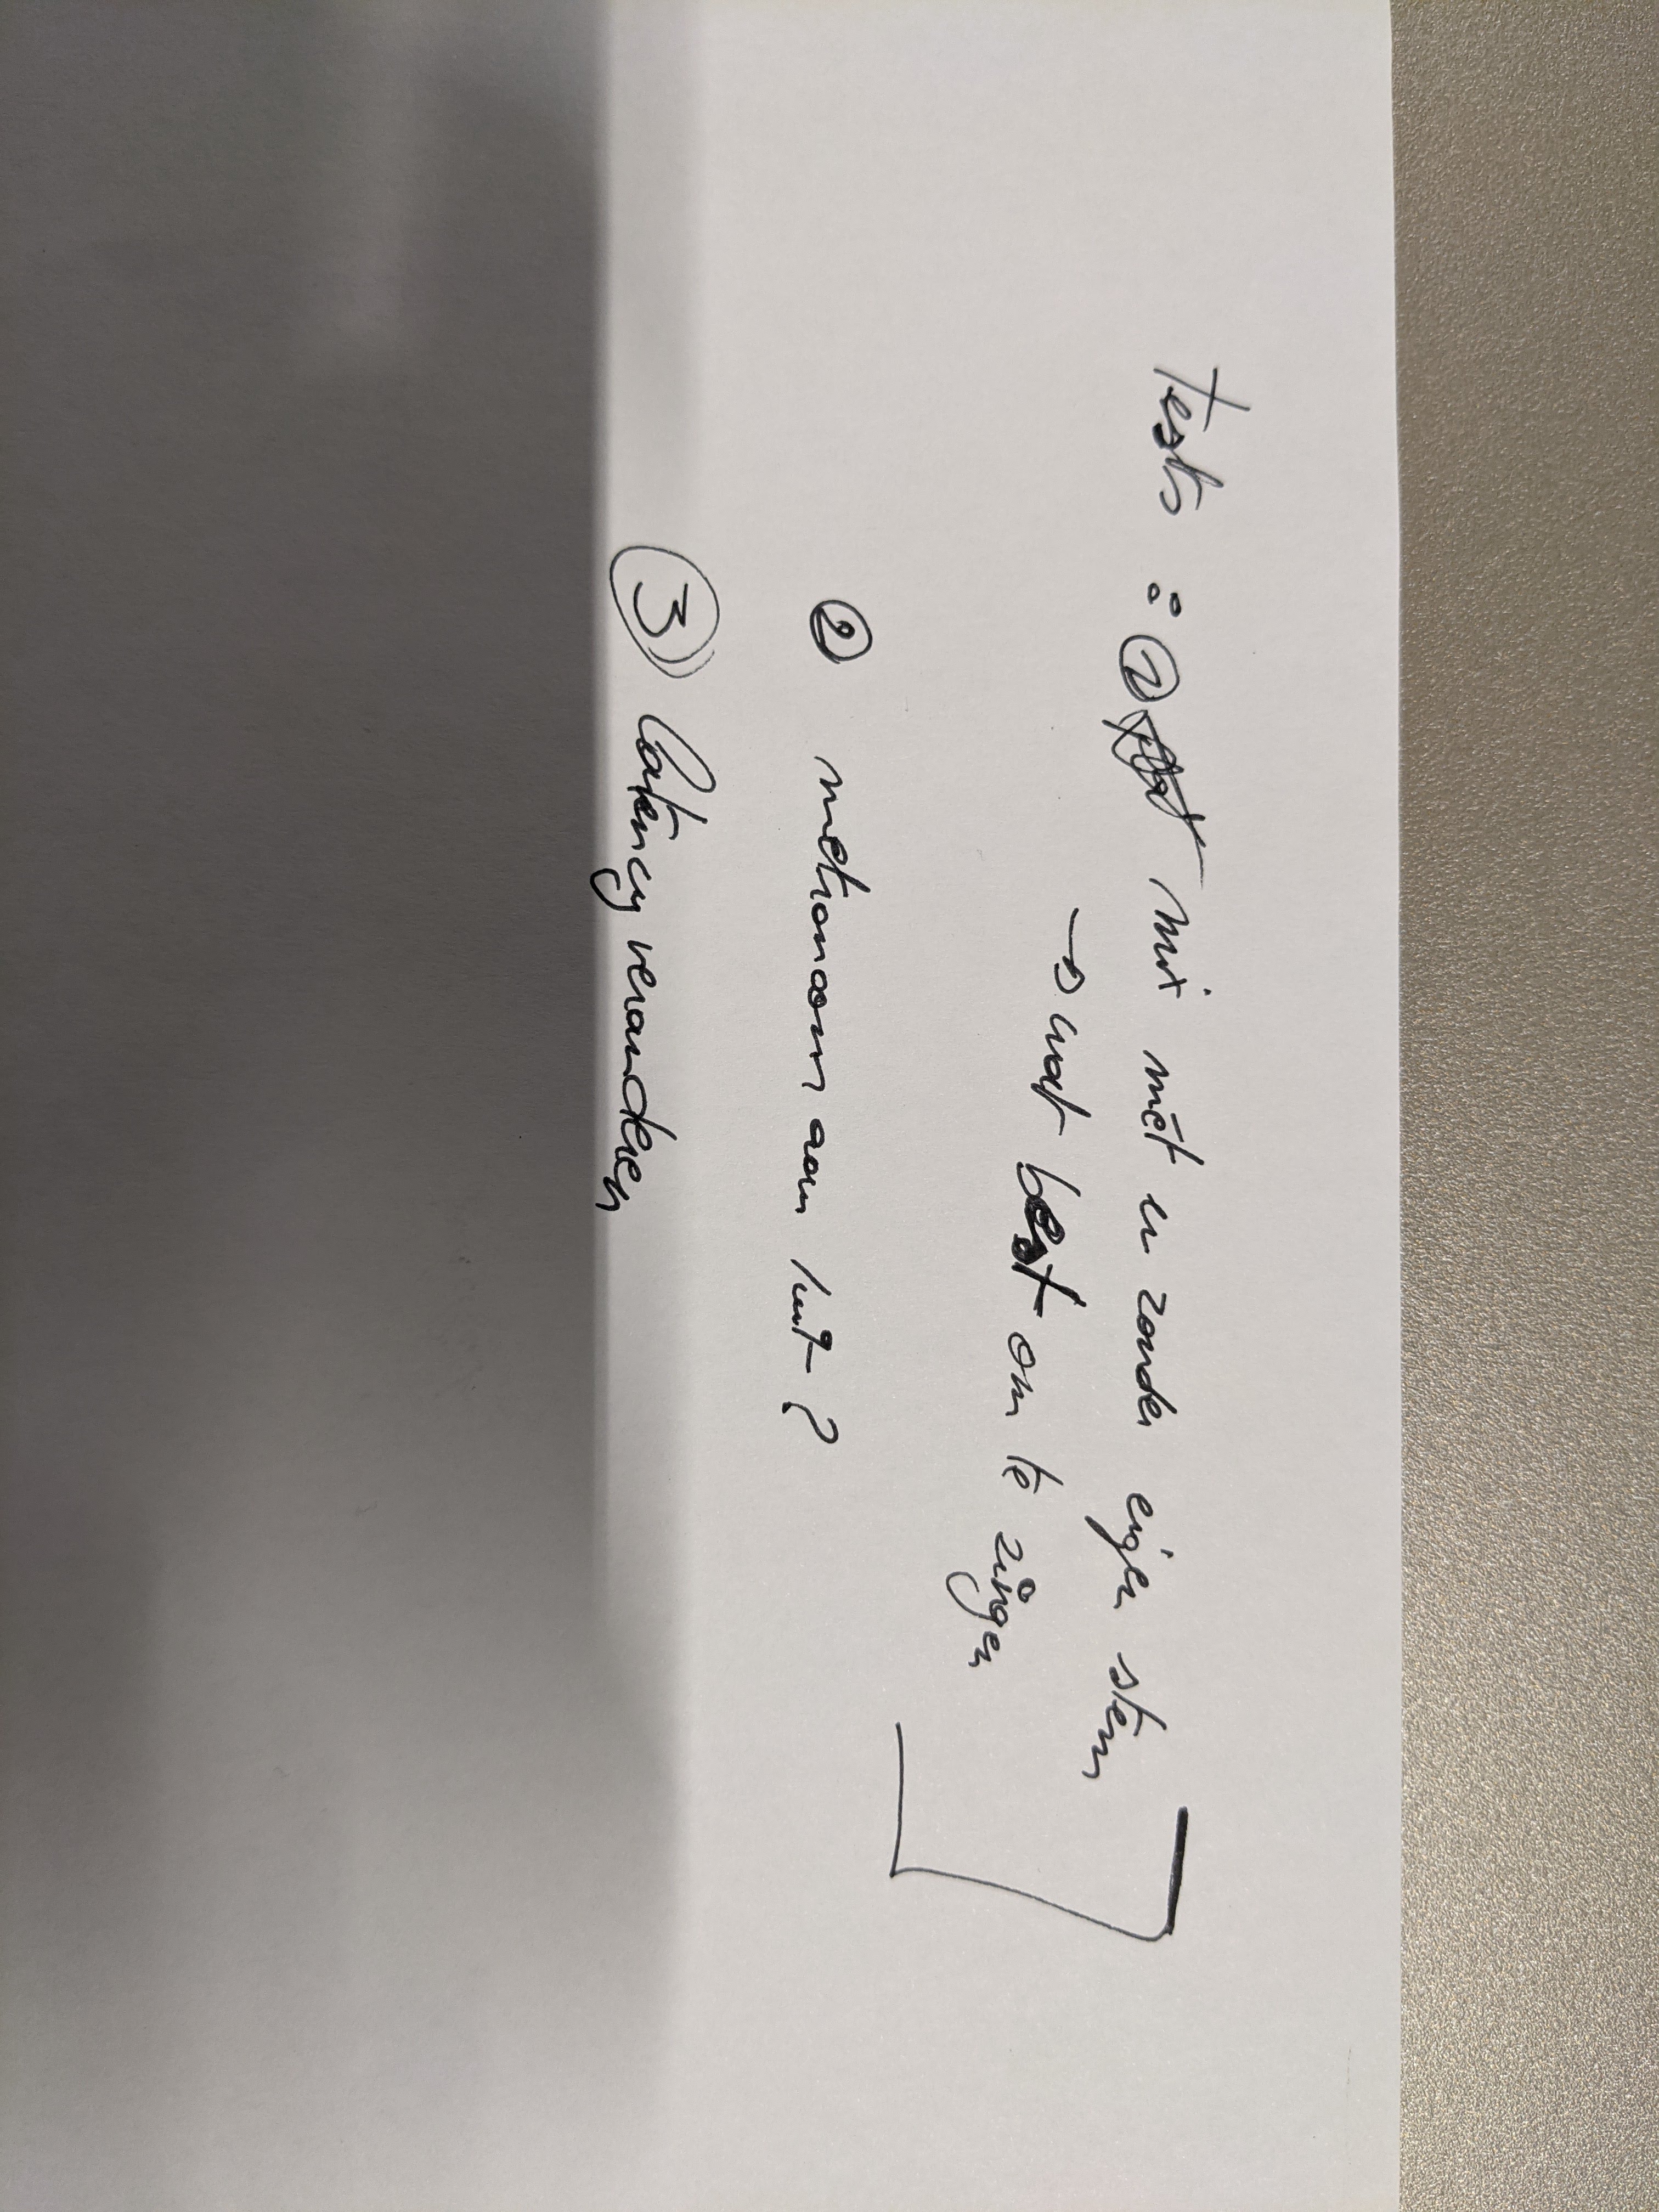 tests : ① mix met en zonder eigen stem
→ wat best om te zingen
② metronoom aan / uit ?
③ latency veranderen